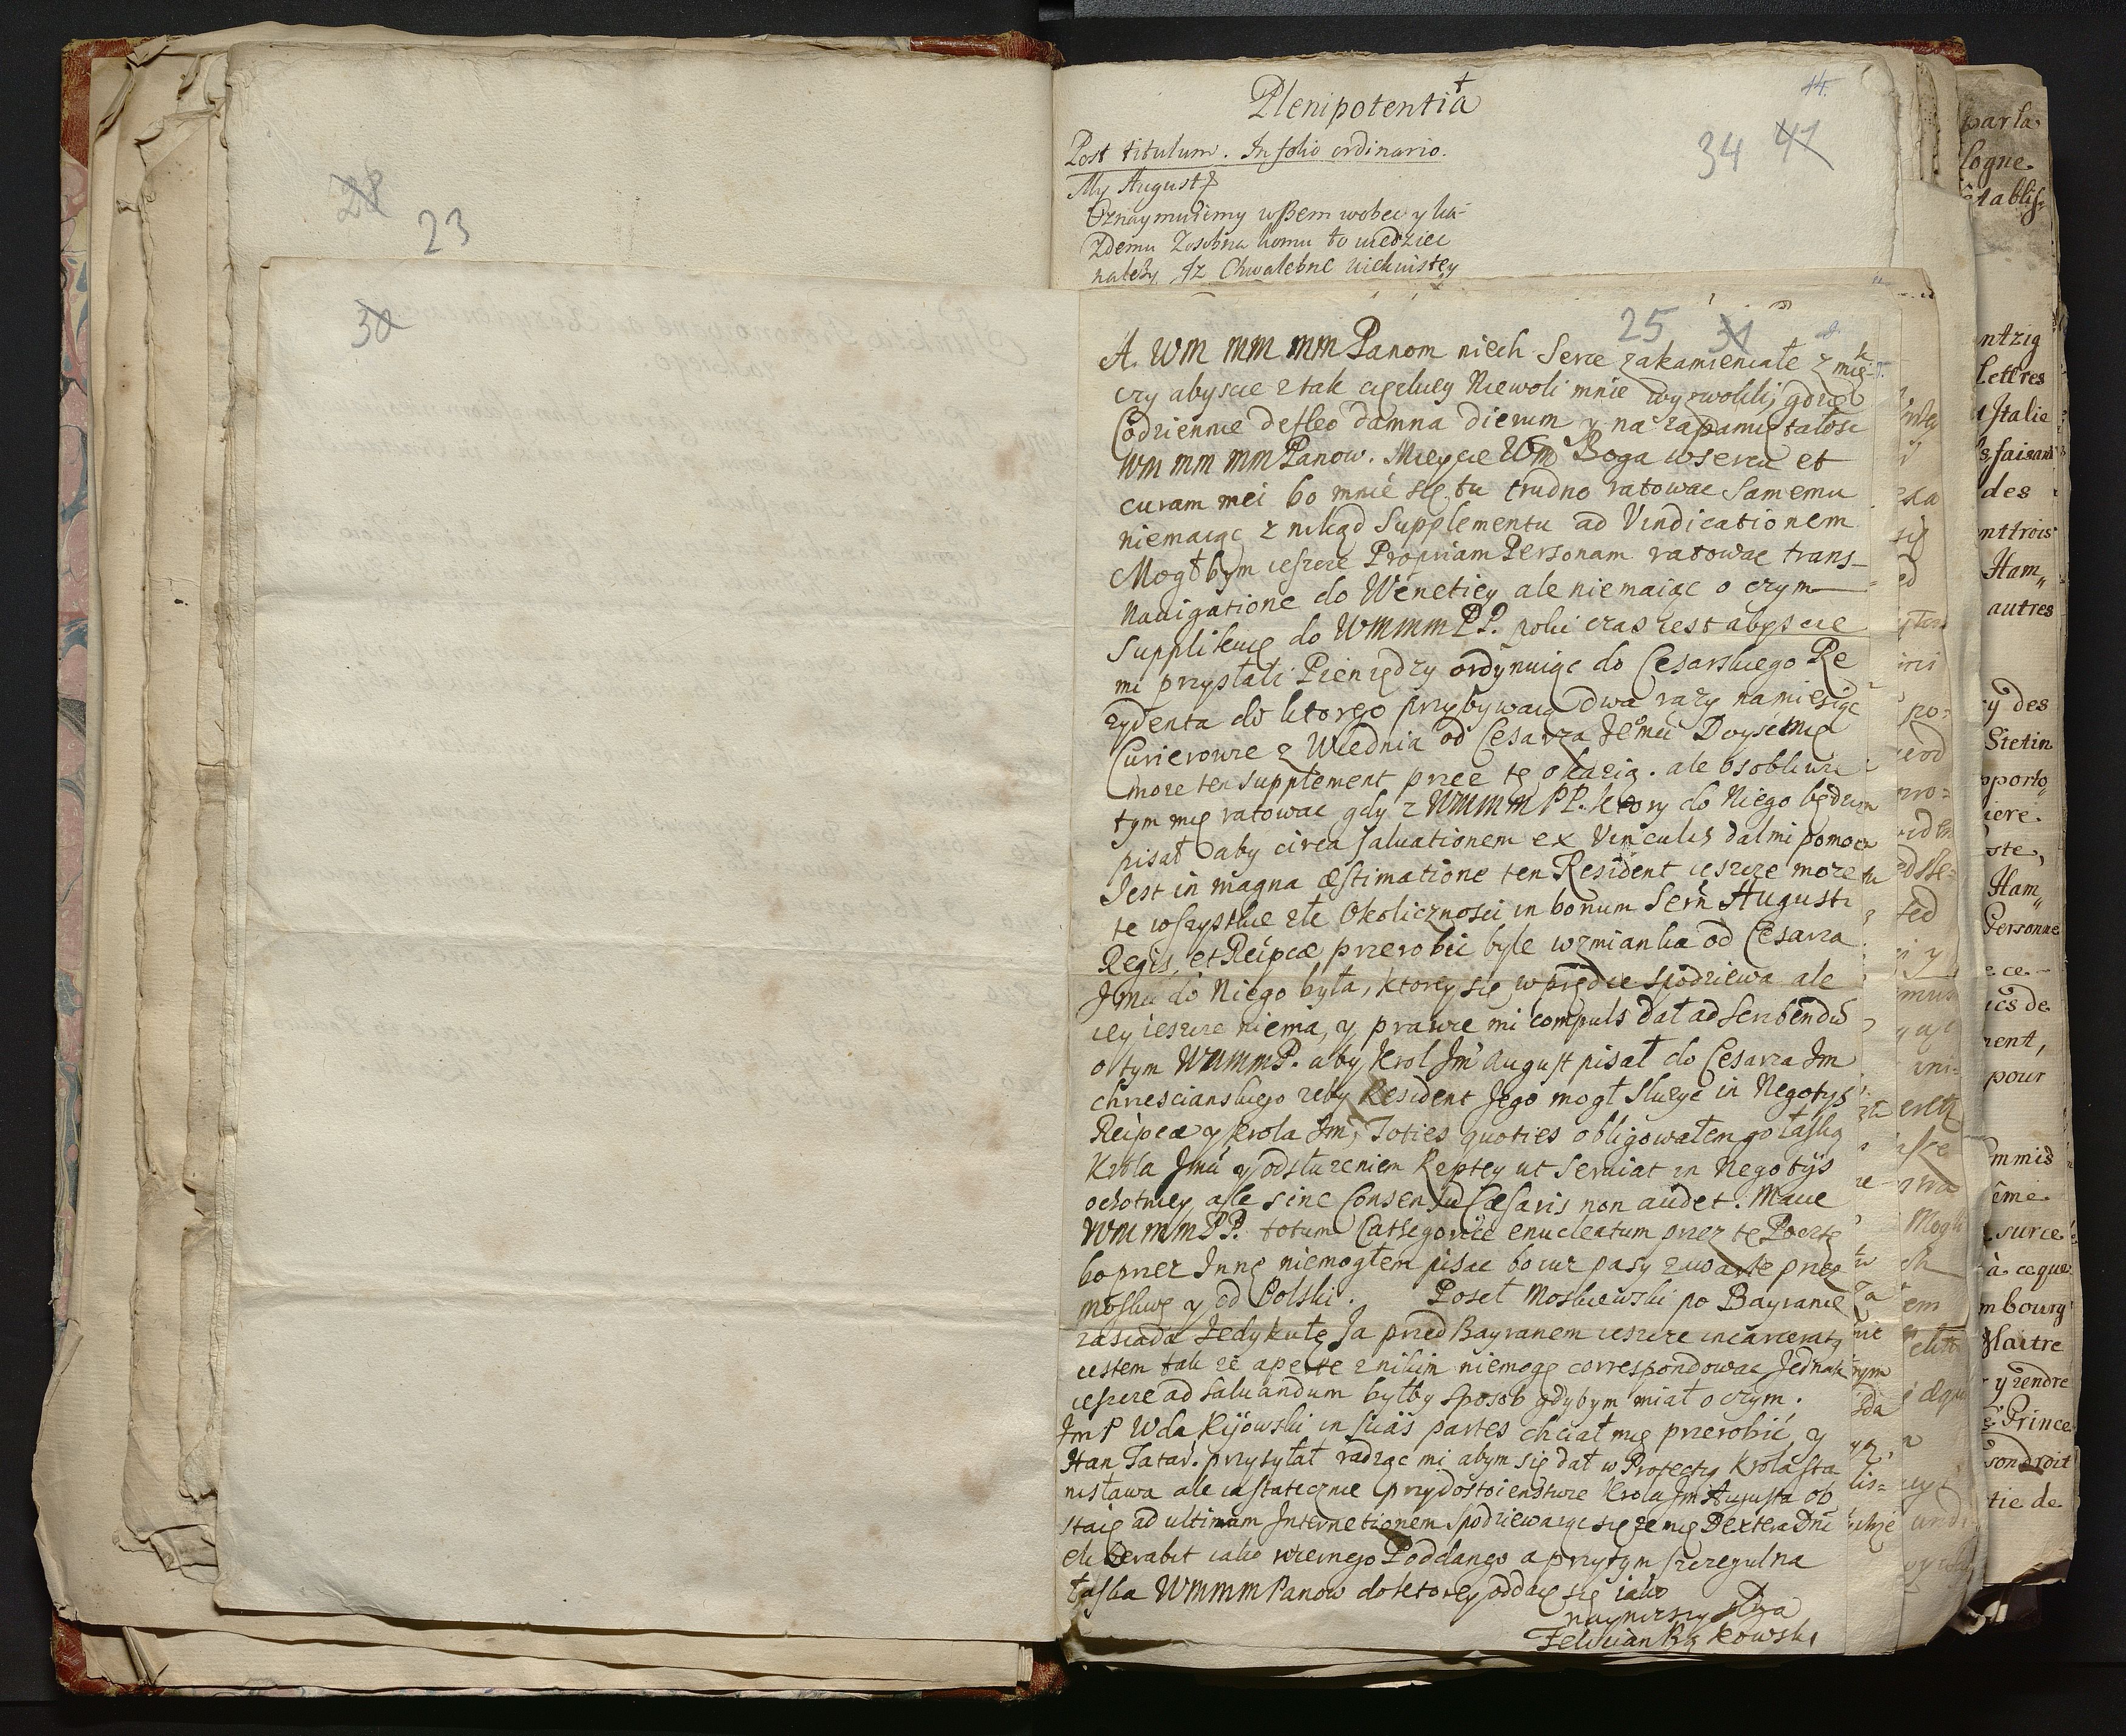 28
23
30
Plenipotentia
14.
Post titulum. In folio ordinario.
34 41
My August
Oznaymuiemy wßem wobec y ka-
żdemu Zosobna komu to wiedziec
należy Iz Chwalebne
25 31
A. WM MM MM Panom niech Serce zakamieniałe zmięk-
czy abyscie z tak cięzkiey Niewoli mnie wyzwolili, gdzie
Codziennie defleo damna dierum y na zapamiętałosc
WM MM MM Panow. Mieycie WM Boga w sercu et
curam mei bo mnie się tu trudno ratowac Samemu
niemaiąc z nikąd Supplementu ad Vindicationem
Mogłbym ieszcze Propriam Personam ratowac trans-
nauigatione do Wenetiey ale niemaiąc o czym
Supplikuię do WMMMPP. poki czas iest abyscie
mi przysłali Pieniędzy ordynuiąc do Cesarskiego Re
zydenta do ktorego przybywaią dwa razy na miesiąc
Curierowie z Wiednia od Cesarza Jemci
moze ten supplement przez tę okazią. ale osobliwie
tym mię ratowac gdy z WMMM PP. ktory do Niego będzie
pisał aby circa saluationem ex Vinculis dał mi pomoc
Jest in magna æstimatione ten Resident ieszcze moze tu
te wszystkie złe Okolicznosci in bonum Sern Augusti
Regis, et Reipcæ przerobic byle wzmianka od Cesarza
Jmci do Niego była, ktorey się w prędce spodziewa ale
iey ieszcze niema, y prawie mi compuls dał ad scribendu
o tym WMMMP. aby Krol Jm August pisał do Cesarza Jm
chrzescianskiego zeby Resident Jego mogł słuzyc in Negotys
Reipcæ y Krola Jm, Toties quoties obligowałem go łaską
Krola Jmci y odsłuzeniem Rzptey ut seruiat in Negotijs
ochotniey, ale sine Consensu Cæsaris non audet. Macie
WM MM PP. totum Cathegorice enucleatum przez tę Pocztę
bo przez Inną niemogłem pisac bo iuz pasy zwarte przez
Moskwę y od Polski. Poseł Moskiewski po Bayranie
zasiada Jedykułę Ja przed Bayranem ieszcze incarceraty
iestem tak ze aperte z nikim niemogę correspondowac Jednak
ieszcze ad saluandum byłby sposob gdybym miał o czym.
Jm P Wda Kijowski in suas partes chciał mię przerobić, y
Han Tatar. przysyłał radząc mi abym się dał w Protectią Krola Sta
nisława ale ia statecznie przy dostoienstwie Krola Jm Augusta ob
staię ad ultimam Internetionem spodziewaiąc się ze mię Dextera Dni
eliberabit iako wiernego Poddanego a przytym szczegulna
łaska WMMM Panow do ktorey oddaię się iako
naynizszy sługa
Felician Bąkowski
parla
logne.
établis-
ntzig
Lettres
Italie
s, faisant
des
nttrois
Ham„
autres
y des
Stetin
pporto„
iere.
ste,
Ham„
Personne
e ce
ics de
nent,
pour
mmis
ême
surce
à ce que
mbourg
Maitre
y rendre
Prince
son droit
tie de